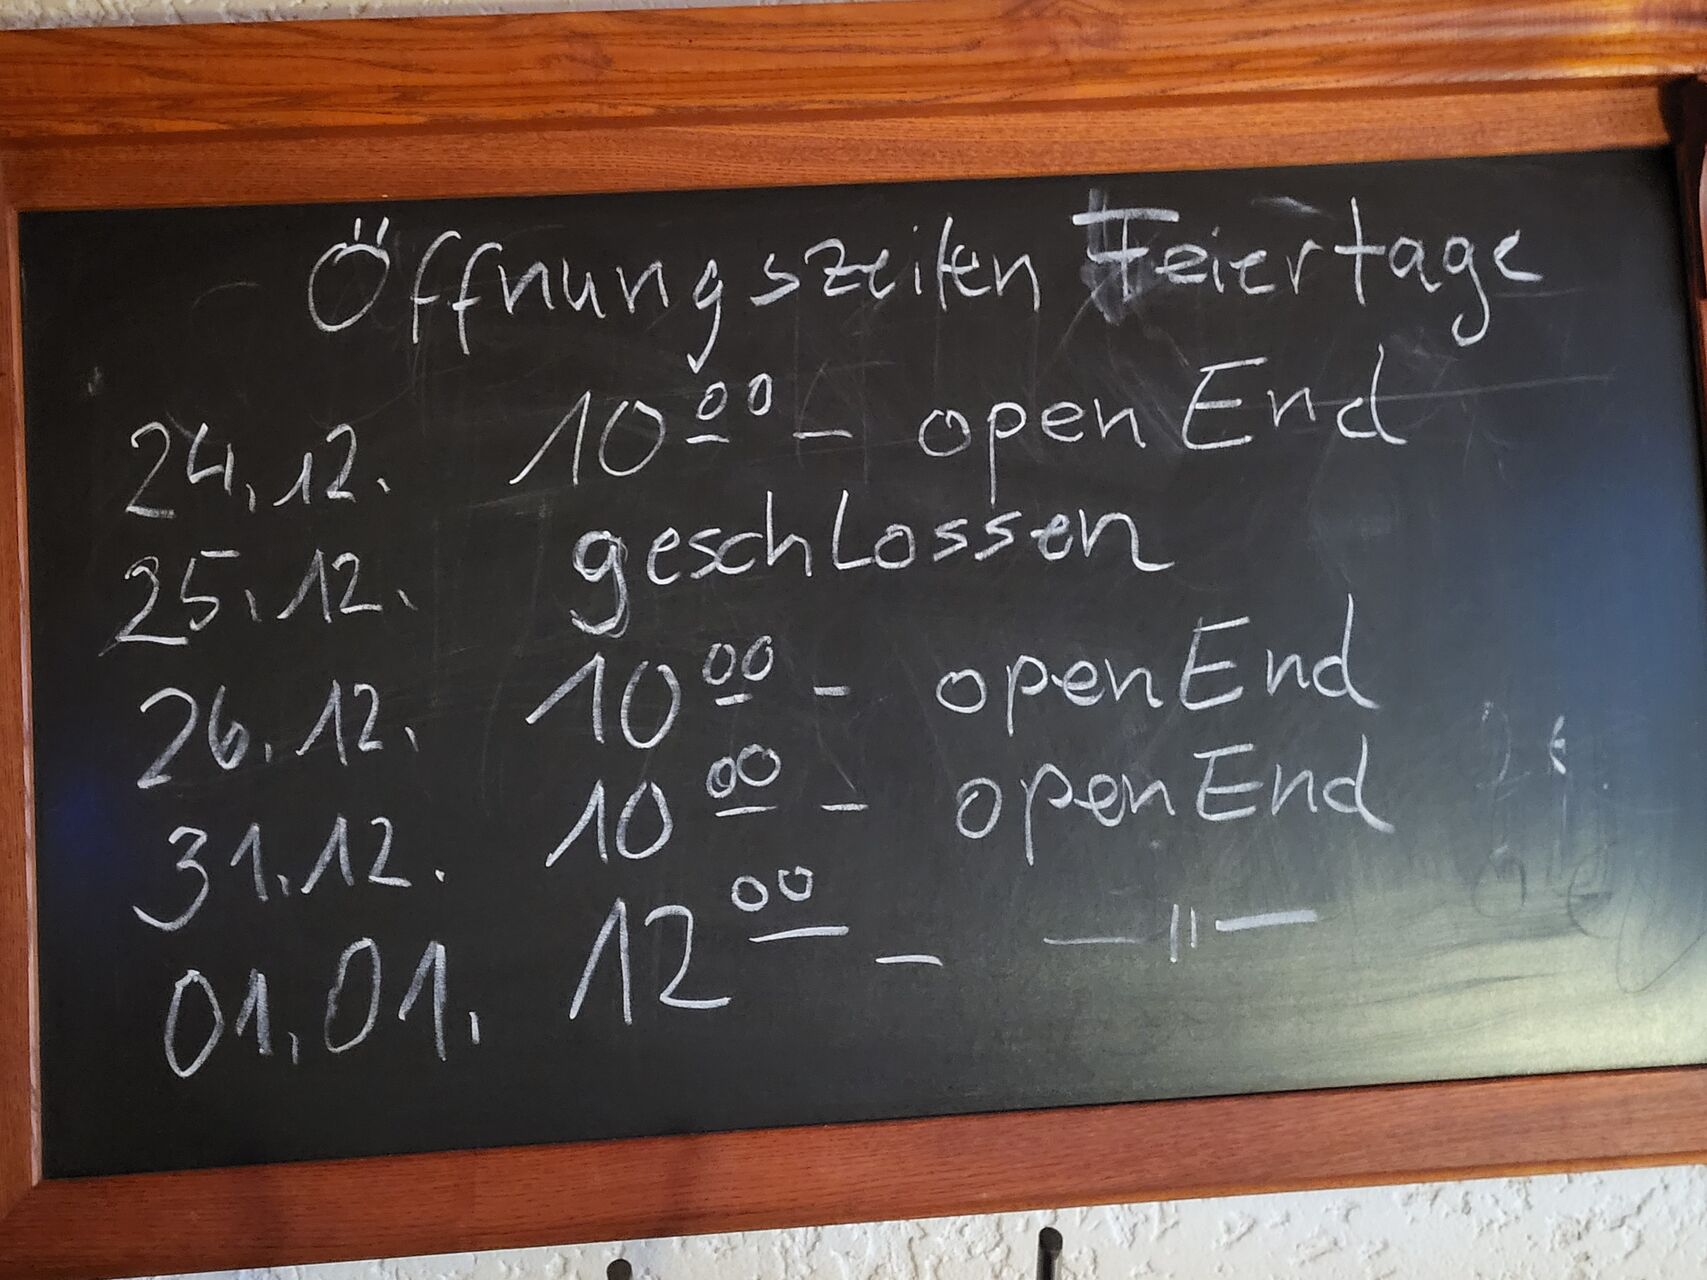 Öffnungszeiten Feiertage
24.12. 10⁰⁰ - open End
25.12. geschlossen
26.12. 10⁰⁰ - open End
31.12. 10⁰⁰ - open End
01.01. 12⁰⁰ - —"—